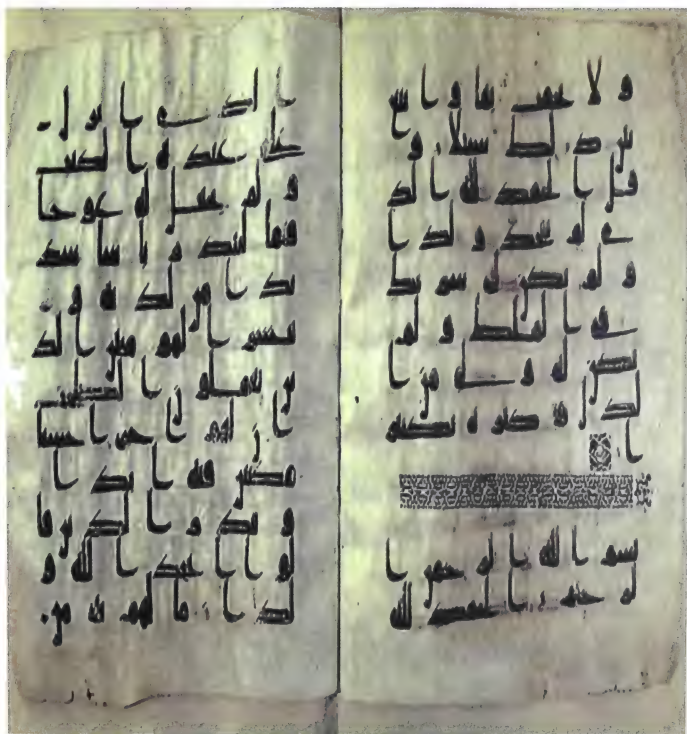 ولا تخفت بها وابتغ
بين ذلك سبيلا و
قل الحمد لله الذ
ي لم يتخذ ولدا
ولم يكن له شريك
في الملك ولم
يكن له ولي من ا
لذل وكبره تكبير
ا
بسم الله الرحمن ا
لرحيم الحمد لله
الذي انزل
على عبده الكتب
ولم يجعل له عوجا
قيما لينذر باسا شد
يدا من لدنه و
يبشر المومنين الذ
ين يعملون الصلحت
ان لهم اجرا حسنا
مكثين فيه ابدا
وينذر الذين قا
لوا اتخذ الله و
لدا ما لهم به من